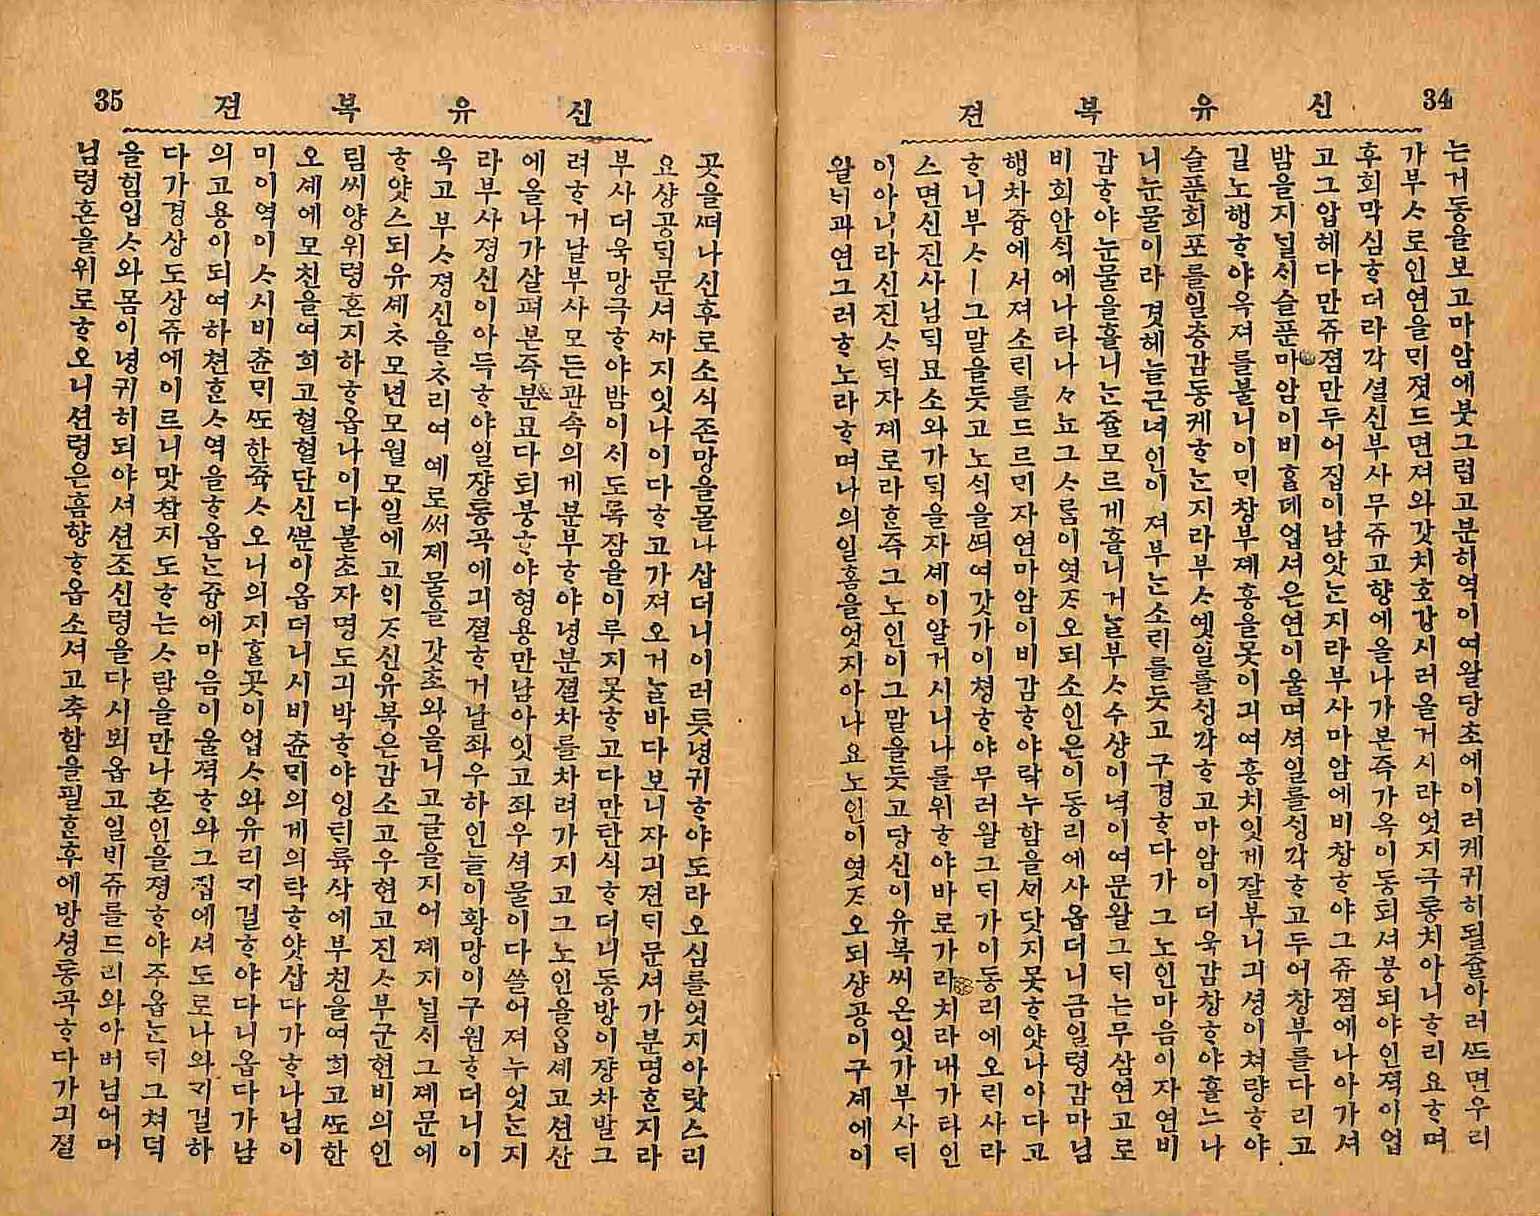 신유복젼 34
는거동을보고마암에붓그럽고분히역이여왈당초에이러케귀히될쥴아러ᄯᅳ면우리
가부ᄉᆞ로인연을ᄆᆡ졋드면져와갓치호강시러올거시라엇지구통치아니ᄒᆞ리요ᄒᆞ며
후회막심ᄒᆞ더라각셜신부사무쥬고향에올나가본즉가옥이동퇴셔붕되야인젹이업
고그압헤다만쥬졈만두어집이남앗ᄂᆞᆫ지라부사마암에비창ᄒᆞ야그쥬졈에나아가셔
밤을지널ᄉᆡ슬푼마암이비ᄒᆞᆯ데업셔은연이울며셕일를ᄉᆡᆼ각ᄒᆞ고두어창부를다리고
길노행ᄒᆞ야옥져를불니이ᄆᆡ창부졔흥을못이긔여흥치잇게잘부니긔셩이쳐량ᄒᆞ야
슬푼회포를일층감동케ᄒᆞᄂᆞᆫ지라부ᄉᆞ옛일를ᄉᆡᆼ각ᄒᆞ고마암이더욱감창ᄒᆞ야흘느나
니눈물이라겻헤늘근녀인이져부ᄂᆞᆫ소ᄅᆡ를듯고구경ᄒᆞ다가그노인마음이자연비
감ᄒᆞ야눈물을흘니ᄂᆞᆫ쥴모르게흘니거ᄂᆞᆯ부ᄉᆞ수샹이녁이여문왈그ᄃᆡ는무삼연고로
비회안ᄉᆡᆨ에나타나ᄂᆞ뇨그ᄉᆞ롬이엿ᄌᆞ오되소인은이동리에사옵더니금일령감마님
행차즁에서져소ᄅᆡ를드르ᄆᆡ자연마암이비감ᄒᆞ야락누함을ᄭᆡ닷지못ᄒᆞ얏나이다고
ᄒᆞ니부ᄉᆞㅣ그말을듯고노ᄉᆡᆨ을ᄯᅴ여갓가이쳥ᄒᆞ야무러왈그ᄃᆡ가이동리에오ᄅᆡ사라
스면신진사님ᄃᆡᆨ묘소와가ᄃᆡᆨ을자셰이알거시니나를위ᄒᆞ야바로가라치라내가타인
이아니라신진ᄉᆞᄃᆡᆨ자졔로라ᄒᆞᆫ즉그노인이그말을듯고당신이유복씨온잇가부사ᄃᆡ
왈ᄂᆡ과연그러ᄒᆞ노라ᄒᆞ며나의일홈을엇지아나요노인이엿ᄌᆞ오되샹공이구셰에이
신유복젼 35
곳을ᄯᅥ나신후로소식존망을몰나삽더니이러틋녕귀ᄒᆞ야도라오심를엇지아랏스리
요샹공ᄃᆡᆨ문셔ᄭᅡ지잇나이다ᄒᆞ고가져오거ᄂᆞᆯ바다보니자긔젼ᄃᆡ문셔가분명ᄒᆞᆫ지라
부사더욱망극ᄒᆞ야밤이ᄉᆡ도록잠을이루지못ᄒᆞ고다만탄식ᄒᆞ더니동방이쟝차발그
려ᄒᆞ거날부사모든관속의게분부ᄒᆞ야녕분졀차를차려가지고그노인을압셰고션산
에올나가살펴본즉분묘다퇴붕ᄒᆞ야형용만남아잇고좌우셕물이다쓸어져누엇ᄂᆞᆫ지
라부사졍신이아득ᄒᆞ야일쟝통곡에긔졀ᄒᆞ거날좌우하인들이황망이구원ᄒᆞ더니이
윽고부ᄉᆞ졍신을ᄎᆞ리여예로써졔물을갓초와올니고글을지어졔지널ᄉᆡ그졔문에
ᄒᆞ얏스되유셰ᄎᆞ모년모월모일에고ᄋᆡᄌᆞ신유복은감소고우현고진ᄉᆞ부군현비의인
림씨양위령혼지하ᄒᆞ옵나이다불효자명도긔박ᄒᆞ야잉ᄐᆡ륙삭에부친을여희고ᄯᅩ한
오셰에모친을여희고혈혈단신ᄲᅮᆫ이옵더니시비츈ᄆᆡ의게의탁ᄒᆞ얏삽다가ᄒᆞ나님이
미이역이ᄉᆞ시비츈ᄆᆡᄯᅩ한쥭ᄉᆞ오니의지ᄒᆞᆯ곳이업ᄉᆞ와유리ᄀᆡ걸ᄒᆞ야다니옵다가남
의고용이되여하쳔ᄒᆞᆫᄉᆞ역을ᄒᆞ옵ᄂᆞᆫ즁에마음이울젹ᄒᆞ와그집에셔도로나와ᄀᆡ걸하
다가경상도상쥬에이르니맛참지도ᄒᆞ는ᄉᆞ람을만나혼인을졍ᄒᆞ야주옵ᄂᆞᆫᄃᆡ그쳐덕
을힘입ᄉᆞ와몸이녕귀히되야셔션조신령을다시뵈옵고일ᄇᆡ쥬를드리와아버님어머
님령혼을위로ᄒᆞ오니션령은흠향ᄒᆞ옵소셔고축합을필ᄒᆞᆫ후에방셩통곡ᄒᆞ다가긔졀